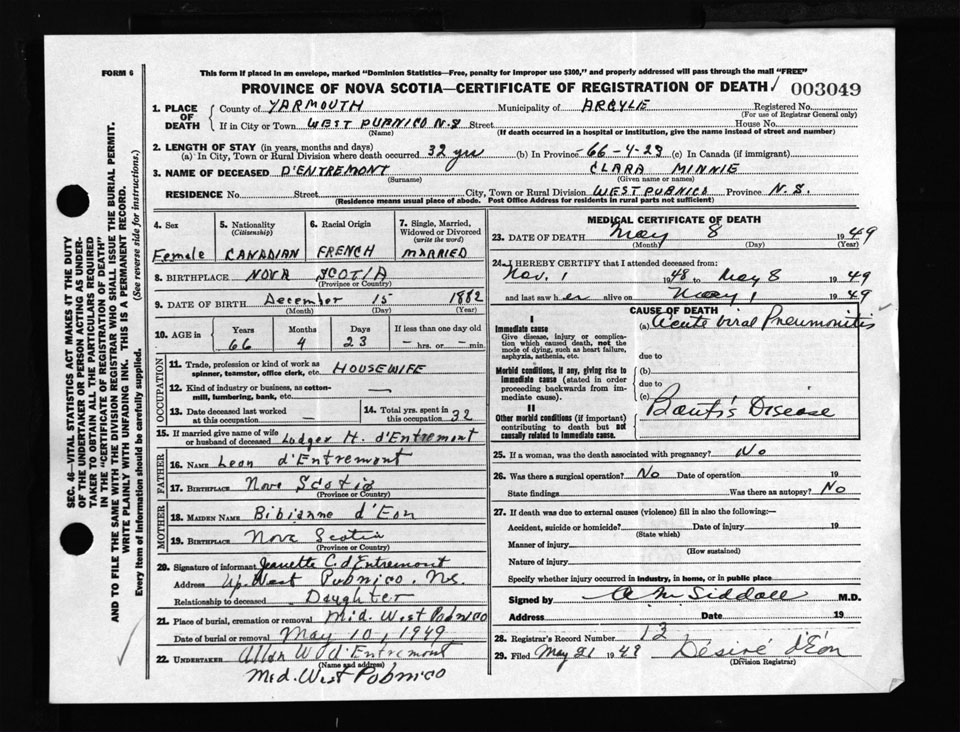 FORM 6
This form if placed in an envelope, marked "Dominion Statistics—Free, penalty for improper use $300," and properly addressed will pass through the mail "FREE"
PROVINCE OF NOVA SCOTIA—CERTIFICATE OF REGISTRATION OF DEATH 003049
1. PLACE OF DEATH
County of YARMOUTH Municipality of ARGYLE Registered No.
(For use of Registrar General only)
If in City or Town WEST PUBNICO N.S Street House No.
(Name) (If death occurred in a hospital or institution, give the name instead of street and number)
2. LENGTH OF STAY (in years, months and days)
(a) In City, Town or Rural Division where death occurred 32 yrs (b) In Province 66-4-23 (c) In Canada (if immigrant)
3. NAME OF DECEASED D'ENTREMONT CLARA MINNIE
(Surname) (Given name or names)
RESIDENCE No. Street City, Town or Rural Division WEST PUBNICO Province N.S.
(Residence means usual place of abode. Post Office Address for residents in rural parts not sufficient)
4. Sex
Female
5. Nationality
(Citizenship)
CANADIAN
6. Racial Origin
FRENCH
7. Single, Married,
Widowed or Divorced
(write the word)
MARRIED
8. BIRTHPLACE NOVA SCOTIA
(Province or Country)
9. DATE OF BIRTH December 15 1882
(Month) (Day) (Year)
10. AGE in
Years Months Days If less than one day old
66 4 23 — hrs. or — min.
OCCUPATION
11. Trade, profession or kind of work as
spinner, teamster, office clerk, etc. HOUSEWIFE
12. Kind of industry or business, as cotton-
mill, lumbering, bank, etc. —
13. Date deceased last worked
at this occupation —
14. Total yrs. spent in
this occupation 32
15. If married give name of wife
or husband of deceased Ludger H. d'Entremont
FATHER
16. NAME Leon d'Entremont
17. BIRTHPLACE Nova Scotia
(Province or Country)
MOTHER
18. MAIDEN NAME Bibianne d'Eon
19. BIRTHPLACE Nova Scotia
(Province or Country)
20. Signature of informant Jeanette C. d'Entremont
Address Up. West Pubnico, N.S.
Relationship to deceased Daughter
21. Place of burial, cremation or removal Mid. West Pubnico
Date of burial or removal May 10, 1949
22. UNDERTAKER Allan W. d'Entremont
(Name and address)
Mid. West Pubnico
MEDICAL CERTIFICATE OF DEATH
23. DATE OF DEATH May 8 1949
(Month) (Day) (Year)
24. I HEREBY CERTIFY that I attended deceased from:
Nov. 1 1948 to May 8 1949
and last saw her alive on May 1 1949
CAUSE OF DEATH
I
Immediate cause
Give disease, injury or complica-
tion which caused death, not the
mode of dying, such as heart failure,
asphyxia, asthenia, etc.
(a) Acute Viral Pneumonitis
due to
Morbid conditions, if any, giving rise to
immediate cause (stated in order
proceeding backwards from im-
mediate cause).
(b)
due to
(c)
II
Other morbid conditions (if important)
contributing to death but not
causally related to immediate cause.
Banti's Disease
25. If a woman, was the death associated with pregnancy? No
26. Was there a surgical operation? No Date of operation 19
State findings Was there an autopsy? No
27. If death was due to external causes (violence) fill in also the following:—
Accident, suicide or homicide? Date of injury 19
(State which)
Manner of injury
(How sustained)
Nature of injury
Specify whether injury occurred in industry, in home, or in public place
Signed by A M Siddall M.D.
Address Date 19
28. Registrar's Record Number 13
29. Filed May 21 1949 Désiré d'Éon
(Division Registrar)
SEC. 46—VITAL STATISTICS ACT MAKES IT THE DUTY
OF THE UNDERTAKER OR PERSON ACTING AS UNDER-
TAKER TO OBTAIN ALL THE PARTICULARS REQUIRED
IN THE "CERTIFICATE OF REGISTRATION OF DEATH"
AND TO FILE THE SAME WITH THE DIVISION REGISTRAR WHO SHALL ISSUE THE BURIAL PERMIT.
WRITE PLAINLY WITH UNFADING INK. THIS IS A PERMANENT RECORD.
Every item of information should be carefully supplied. (See reverse side for instructions.)